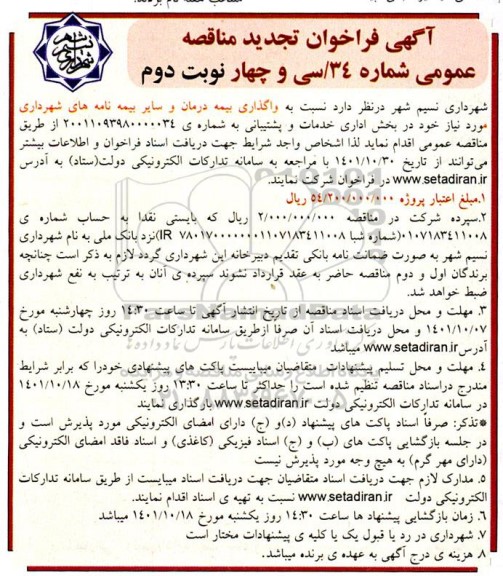 آگهی فراخوان تجدید مناقصه
عمومی شماره ۳۴/سی و چهار نوبت دوم
شهرداری نسیم شهر درنظر دارد نسبت به واگذاری بیمه درمان و سایر بیمه نامه های شهرداری
مورد نیاز خود در بخش اداری خدمات و پشتیبانی به شماره ی ۲۰۰۱۱۰۹۳۹۸۰۰۰۰۰۳۴ از طریق
مناقصه عمومی اقدام نماید لذا اشخاص واجد شرایط جهت دریافت اسناد فراخوان و اطلاعات بیشتر
می‌توانند از تاریخ ۱۴۰۱/۱۰/۳۰ با مراجعه به سامانه تدارکات الکترونیکی دولت(ستاد) به آدرس
www.setadiran.ir در فراخوان شرکت نمایند.
۱.مبلغ اعتبار پروژه ۵۴/۲۰۰/۰۰۰/۰۰۰ ریال
۲.سپرده شرکت در مناقصه ۲/۰۰۰/۰۰۰/۰۰۰ ریال که بایستی نقدا به حساب شماره ی
۰۱۰۷۱۸۳۴۱۱۰۰۸(شماره شبا IR ۷۸۰۱۷۰۰۰۰۰۰۰۱۱۰۷۱۸۳۴۱۱۰۰۸)نزد بانک ملی به نام شهرداری
نسیم شهر به صورت ضمانت نامه بانکی تقدیم دبیرخانه این شهرداری گردد لازم به ذکر است چنانچه
برندگان اول و دوم مناقصه حاضر به عقد قرارداد نشوند سپرده ی آنان به ترتیب به نفع شهرداری
ضبط خواهد شد.
۳. مهلت و محل دریافت اسناد مناقصه از تاریخ انتشار آگهی تا ساعت ۱۴:۳۰ روز چهارشنبه مورخ
۱۴۰۱/۱۰/۰۷ و محل دریافت اسناد آن صرفا ازطریق سامانه تدارکات الکترونیکی دولت (ستاد) به
آدرس www.setadiran.ir میباشد.
۴. مهلت و محل تسلیم پیشنهادات متقاضیان میبایست پاکت های پیشنهادی خودرا که برابر شرایط
مندرج دراسناد مناقصه تنظیم شده است را حداکثر تا ساعت ۱۳:۳۰ روز یکشنبه مورخ ۱۴۰۱/۱۰/۱۸
در سامانه تدارکات الکترونیکی دولت www.setadiran.ir بارگذاری نمایند
*تذکر: صرفاً اسناد پاکت های پیشنهاد (د)و (ج) دارای امضای الکترونیکی مورد پذیرش است و
در جلسه بازگشایی پاکت های (ب) و (ج) اسناد فیزیکی (کاغذی) و اسناد فاقد امضای الکترونیکی
(دارای مهر گرم) به هیچ وجه مورد پذیرش نیست
۵. مدارک لازم جهت دریافت اسناد متقاضیان جهت دریافت اسناد میبایست از طریق سامانه تدارکات
الکترونیکی دولت www.setadiran.ir نسبت به تهیه ی اسناد اقدام نمایند.
۶. زمان بازگشایی پیشنهاد ها ساعت ۱۴:۳۰ روز یکشنبه مورخ ۱۴۰۱/۱۰/۱۸ میباشد
۷. شهرداری در رد یا قبول یک یا کلیه ی پیشنهادات مختار است
۸. هزینه ی درج آگهی به عهده ی برنده میباشد.